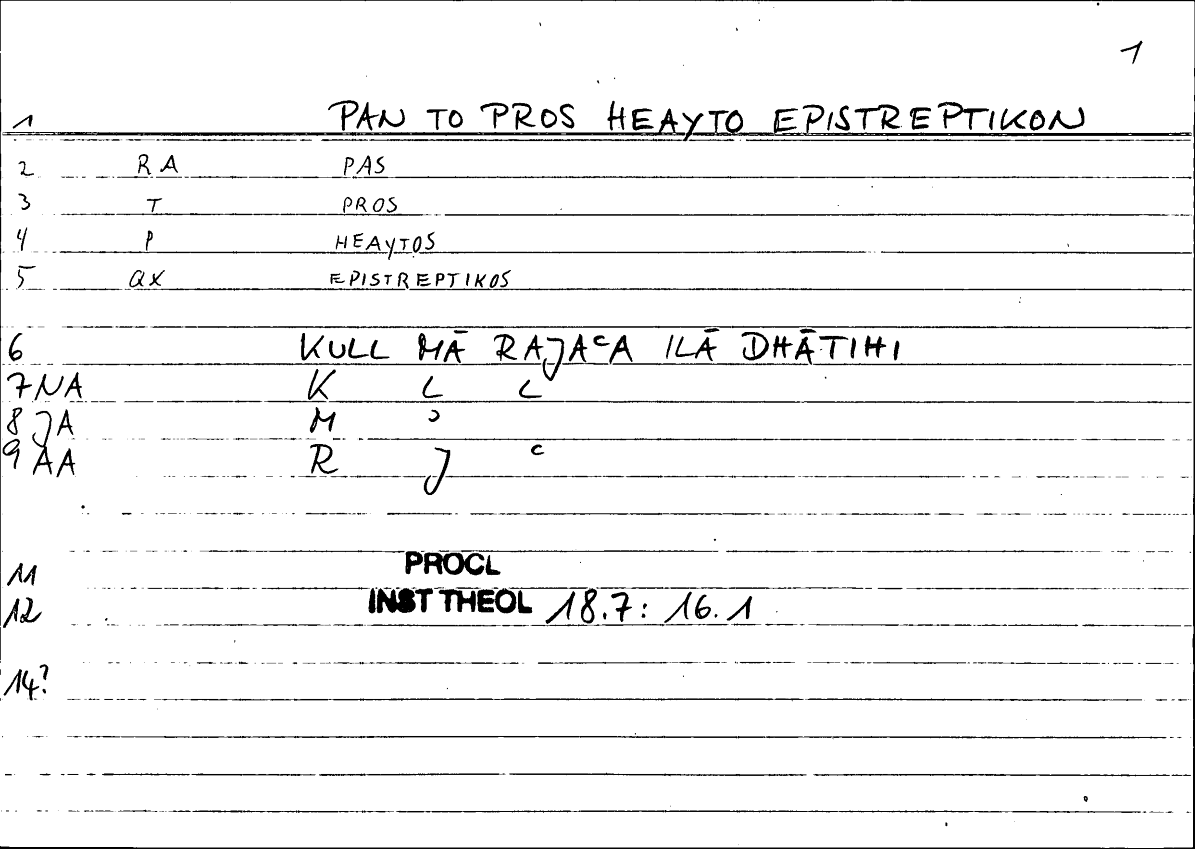 1
1 PAN TO PROS HEAYTO EPISTREPTIKON
2 RA PAS
3 T PROS
4 P HEAYTOS
5 QX EPISTREPTIKOS
6 KULL MĀ RAJAᶜA ILĀ DHĀTIHI
7 NA K L L
8 JA M ᵓ
9 AA R J ᶜ
11 PROCL
12 INST THEOL 18.7: 16.1
14?